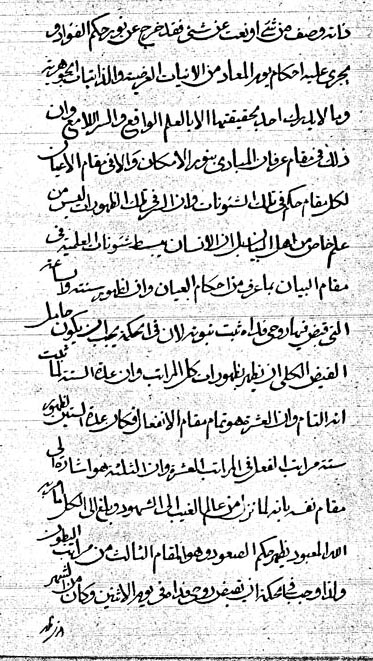 فانه وصف من شئ او نعت عن شئ فقد خرج عن نور حكم الفواد و
يجرى عليه احكام يوم المعاد من الانيات العرضية والذاتيات الجوهرية
وبا لا يدرك احد بحقيقتهما الا بالعلم الواقع والسر اللامع وان
ذلك فى مقام عرفان المبادى بنور الامكان والا فى مقام الاعيان
لكل مقام حكم فى تلك الشئونات وان الفرق تلك الظهورات ليس من
علم خاص من اهل البيان بل ان الانسان يبسط شئونات العلمية فى
مقام البيان بما عرف من احكام العيان وان ظهور سنته
التى قبض فيها روحى فداه ثبت بنور لان فى الحكمة يجب ان يكون حامل
الفيض الكلى ان يظهر بظهورات كل المراتب وان عدة الستة لما ثبت
انه التام وان العشرة هو تمام مقام الانفعال فكان عدة الستين ظهور
ستة مراتب الفعل فى المراتب العشرة وان الثلثة هو اشارة الى
مقام نفسه بانه لما نزل من عالم الغيب الى الشهود وبلغ الى الكل
الله المعبود يظهر حكم الصعود وهو المقام الثالث من مراتب البطون
ولذا وجب فى الحكمة ان تقبض روحى فداه فى يوم الاثنين وكان من الشهر